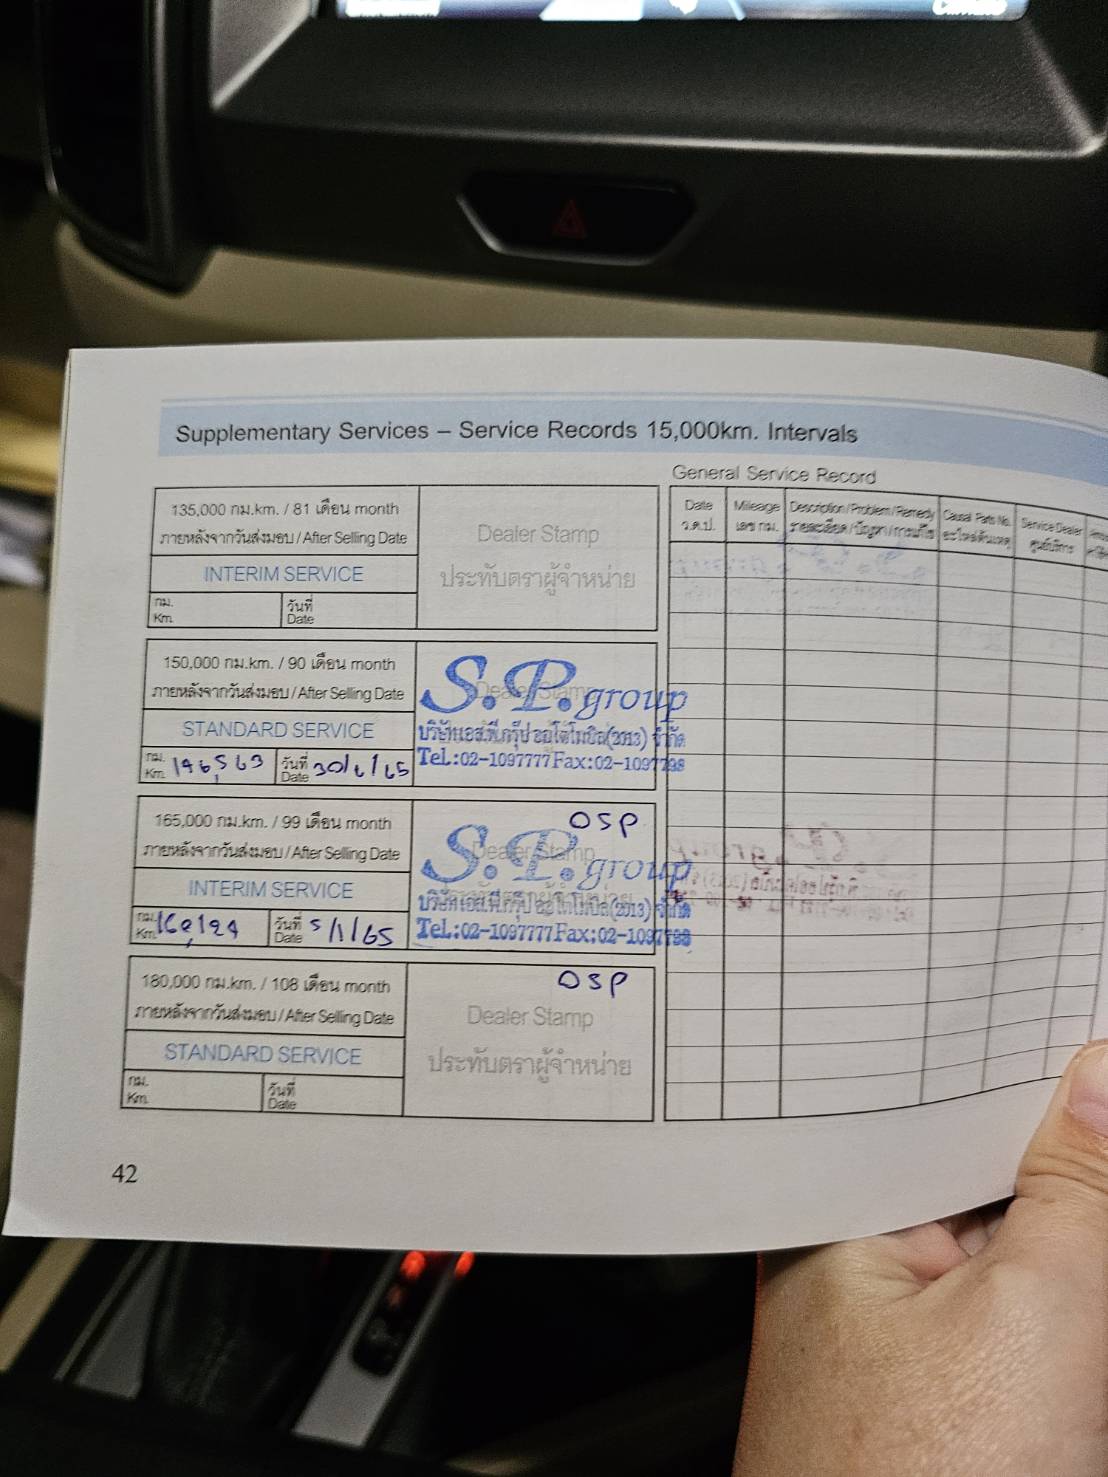 Supplementary Services – Service Records 15,000km. Intervals
135,000 กม.km. / 81 เดือน month
ภายหลังจากวันส่งมอบ / After Selling Date
INTERIM SERVICE
กม.
Km.
วันที่
Date
Dealer Stamp
ประทับตราผู้จำหน่าย
150,000 กม.km. / 90 เดือน month
ภายหลังจากวันส่งมอบ / After Selling Date
STANDARD SERVICE
กม.
Km.
วันที่
Date
S.P.group
บริษัทเอส.พี.กรุ๊ป ออโตโมบิล(2013) จำกัด
Tel.:02-1097777 Fax:02-1097798
165,000 กม.km. / 99 เดือน month
ภายหลังจากวันส่งมอบ / After Selling Date
INTERIM SERVICE
กม.
Km.
วันที่
Date 5/1/65
OSP
S.P.group
บริษัทเอส.พี.กรุ๊ป ออโตโมบิล(2013) จำกัด
Tel.:02-1097777 Fax:02-1097798
180,000 กม.km. / 108 เดือน month
ภายหลังจากวันส่งมอบ / After Selling Date
STANDARD SERVICE
กม.
Km.
วันที่
Date
OSP
Dealer Stamp
ประทับตราผู้จำหน่าย
General Service Record
Date
ว.ด.ป.
Mileage
เลข กม.
Description/Problem/Remedy
รายละเอียด/ปัญหา/การแก้ไข
Causal Parts No.
อะไหล่ต้นเหตุ
Service Dealer
ศูนย์บริการ
42